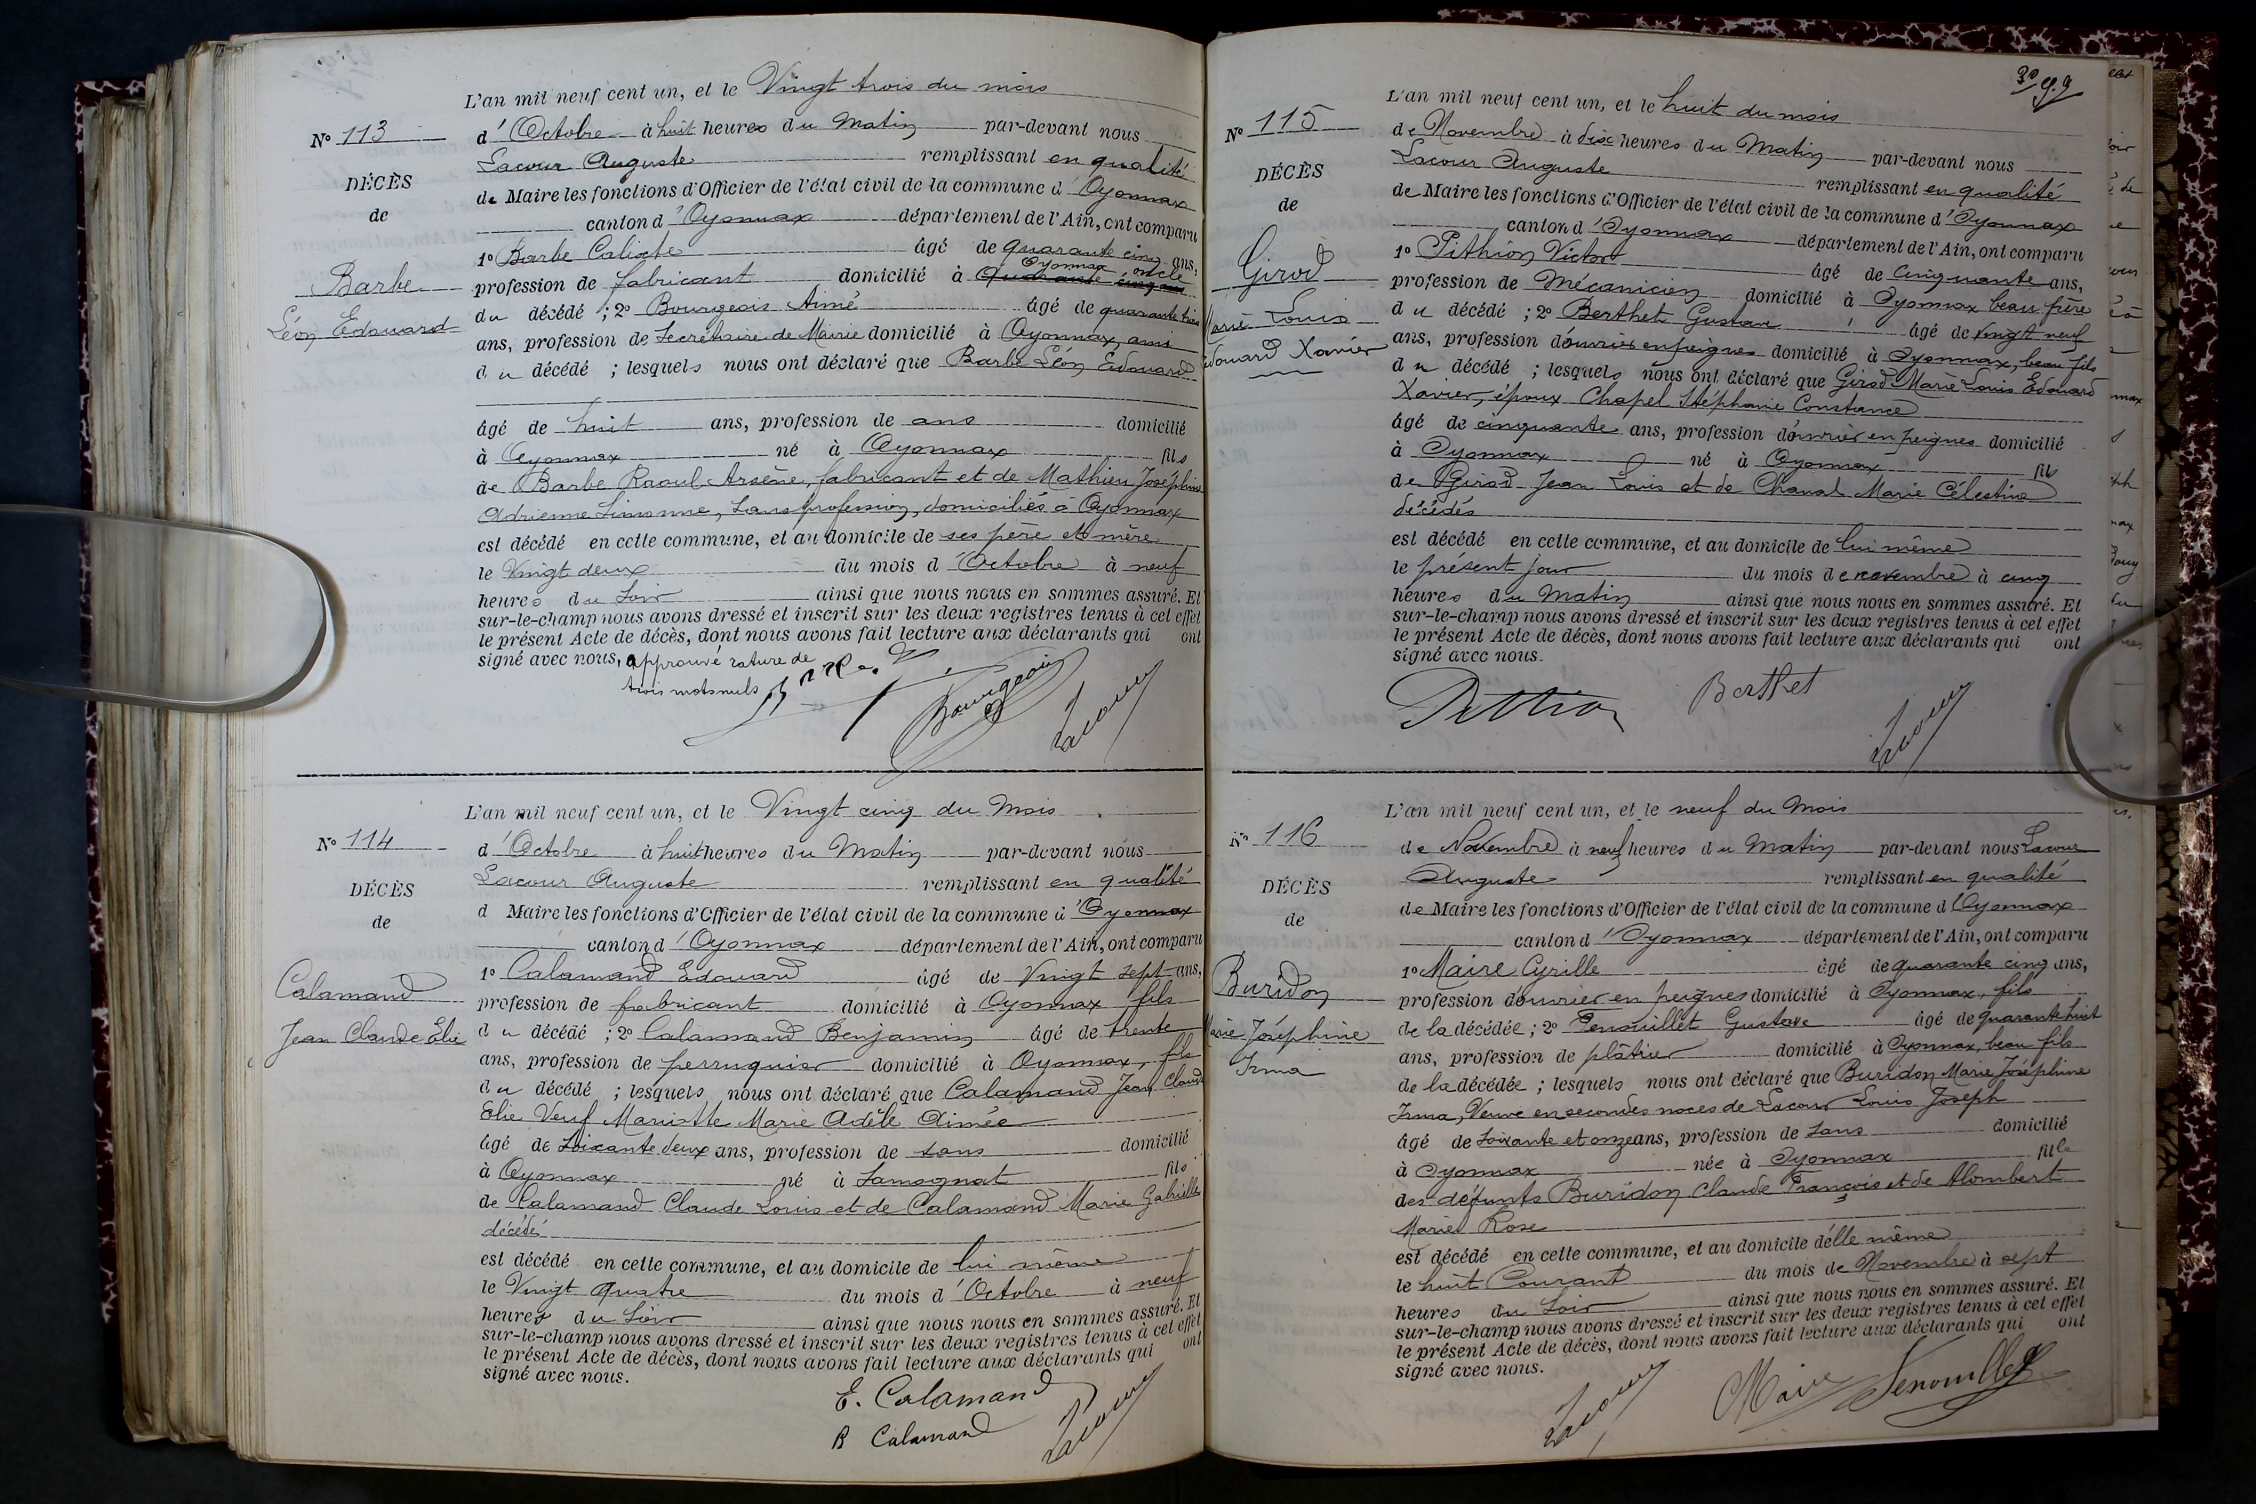 L'an mil neuf cent un, et le Vingt trois du mois
N° 113
d'Octobre à huit heures du Matin par-devant nous
Lacour Auguste remplissant en qualité
DÉCÈS
de Maire les fonctions d'Officier de l'état civil de la commune d'Oyonnax
de
canton d'Oyonnax département de l'Ain, ont comparu
1° Barbe Calixte âgé de quarante cinq ans,
Oyonnax oncle
Barbe
profession de fabricant domicilié à quarante cinq ans
du décédé ; 2° Bourgeois Aimé âgé de quarante trois
Léon Edouard
ans, profession de Secrétaire de Mairie domicilié à Oyonnax, ami
du décédé ; lesquels nous ont déclaré que Barbe Léon Edouard
âgé de huit ans, profession de ans domicilié
à Oyonnax né à Oyonnax fils
de Barbe Raoul Arsène, fabricant et de Mathieu Joséphine
Adrienne Simonne, sans profession, domiciliés à Oyonnax
est décédé en cette commune, et au domicile de ses père et mère
le Vingt deux du mois d'Octobre à neuf
heures du Soir ainsi que nous nous en sommes assuré. Et
sur-le-champ nous avons dressé et inscrit sur les deux registres tenus à cet effet
le présent Acte de décès, dont nous avons fait lecture aux déclarants qui ont
signé avec nous, approuvé rature de
trois mots nuls
Bourgeois
Lacour
L'an mil neuf cent un, et le Vingt cinq du Mois
N° 114
d'Octobre à huit heures du Matin par-devant nous
Lacour Auguste remplissant en qualité
DÉCÈS
d Maire les fonctions d'Officier de l'état civil de la commune d'Oyonnax
de
canton d'Oyonnax département de l'Ain, ont comparu
1° Calamand Edouard âgé de Vingt sept ans,
Calamand
profession de fabricant domicilié à Oyonnax fils
Jean Claude Elie
du décédé ; 2° Calamand Benjamin âgé de trente
ans, profession de perruquier domicilié à Oyonnax, fils
du décédé ; lesquels nous ont déclaré que Calamand Jean Claude
Elie Veuf Mariotte Marie Adèle Aimée
âgé de Soixante deux ans, profession de sans domicilié
à Oyonnax né à Samognat fils
de Calamand Claude Louis et de Calamand Marie Gabrielle
décédé
est décédé en cette commune, et au domicile de lui même
le Vingt quatre du mois d'Octobre à neuf
heures du Soir ainsi que nous nous en sommes assuré. Et
sur-le-champ nous avons dressé et inscrit sur les deux registres tenus à cet effet
le présent Acte de décès, dont nous avons fait lecture aux déclarants qui ont
signé avec nous.
E. Calamand
B Calamand
Lacour
L'an mil neuf cent un, et le huit du mois
N° 115
de Novembre à dix heures du Matin par-devant nous
Lacour Auguste remplissant en qualité
DÉCÈS
de Maire les fonctions d'Officier de l'état civil de la commune d'Oyonnax
de
canton d'Oyonnax département de l'Ain, ont comparu
1° Pithion Victor âgé de Cinquante ans,
Girod
profession de Mécanicien domicilié à Oyonnax beau frère
Marie Louis
du décédé ; 2° Berthet Gustave âgé de vingt neuf
Edouard Xavier
ans, profession d'ouvrier en peignes domicilié à Oyonnax, beau fils
du décédé ; lesquels nous ont déclaré que Girod Marie Louis Edouard
Xavier, époux Chapel Stéphanie Constance
âgé de cinquante ans, profession d'ouvrier en peignes domicilié
à Oyonnax né à Oyonnax fils
de Girod Jean Louis et de Chanal Marie Célestine
décédés
est décédé en cette commune, et au domicile de lui même
le présent jour du mois de novembre à cinq
heures du Matin ainsi que nous nous en sommes assuré. Et
sur-le-champ nous avons dressé et inscrit sur les deux registres tenus à cet effet
le présent Acte de décès, dont nous avons fait lecture aux déclarants qui ont
signé avec nous.
Pithion
Berthet
Lacour
L'an mil neuf cent un, et le neuf du Mois
N° 116
de Novembre à neuf heures du Matin par-devant nous Lacour
Auguste remplissant en qualité
DÉCÈS
de Maire les fonctions d'Officier de l'état civil de la commune d'Oyonnax
de
canton d'Oyonnax département de l'Ain, ont comparu
1° Maire Cyrille âgé de quarante cinq ans,
Buridon
profession d'ouvrier en peignes domicilié à Oyonnax, fils
Marie Joséphine
de la décédée ; 2° Fenouillet Gustave âgé de quarante huit
Irma
ans, profession de plâtrier domicilié à Oyonnax, beau fils
de la décédée ; lesquels nous ont déclaré que Buridon Marie Joséphine
Irma, Veuve en secondes noces de Lacour Louis Joseph
âgé de soixante et onze ans, profession de sans domicilié
à Oyonnax née à Oyonnax fille
des défunts Buridon Claude François et de Alombert
Marie Rose
est décédé en cette commune, et au domicile d'elle même
le huit Courant du mois de Novembre à sept
heures du Soir ainsi que nous nous en sommes assuré. Et
sur-le-champ nous avons dressé et inscrit sur les deux registres tenus à cet effet
le présent Acte de décès, dont nous avons fait lecture aux déclarants qui ont
signé avec nous.
Lacour
Maire
Fenouillet